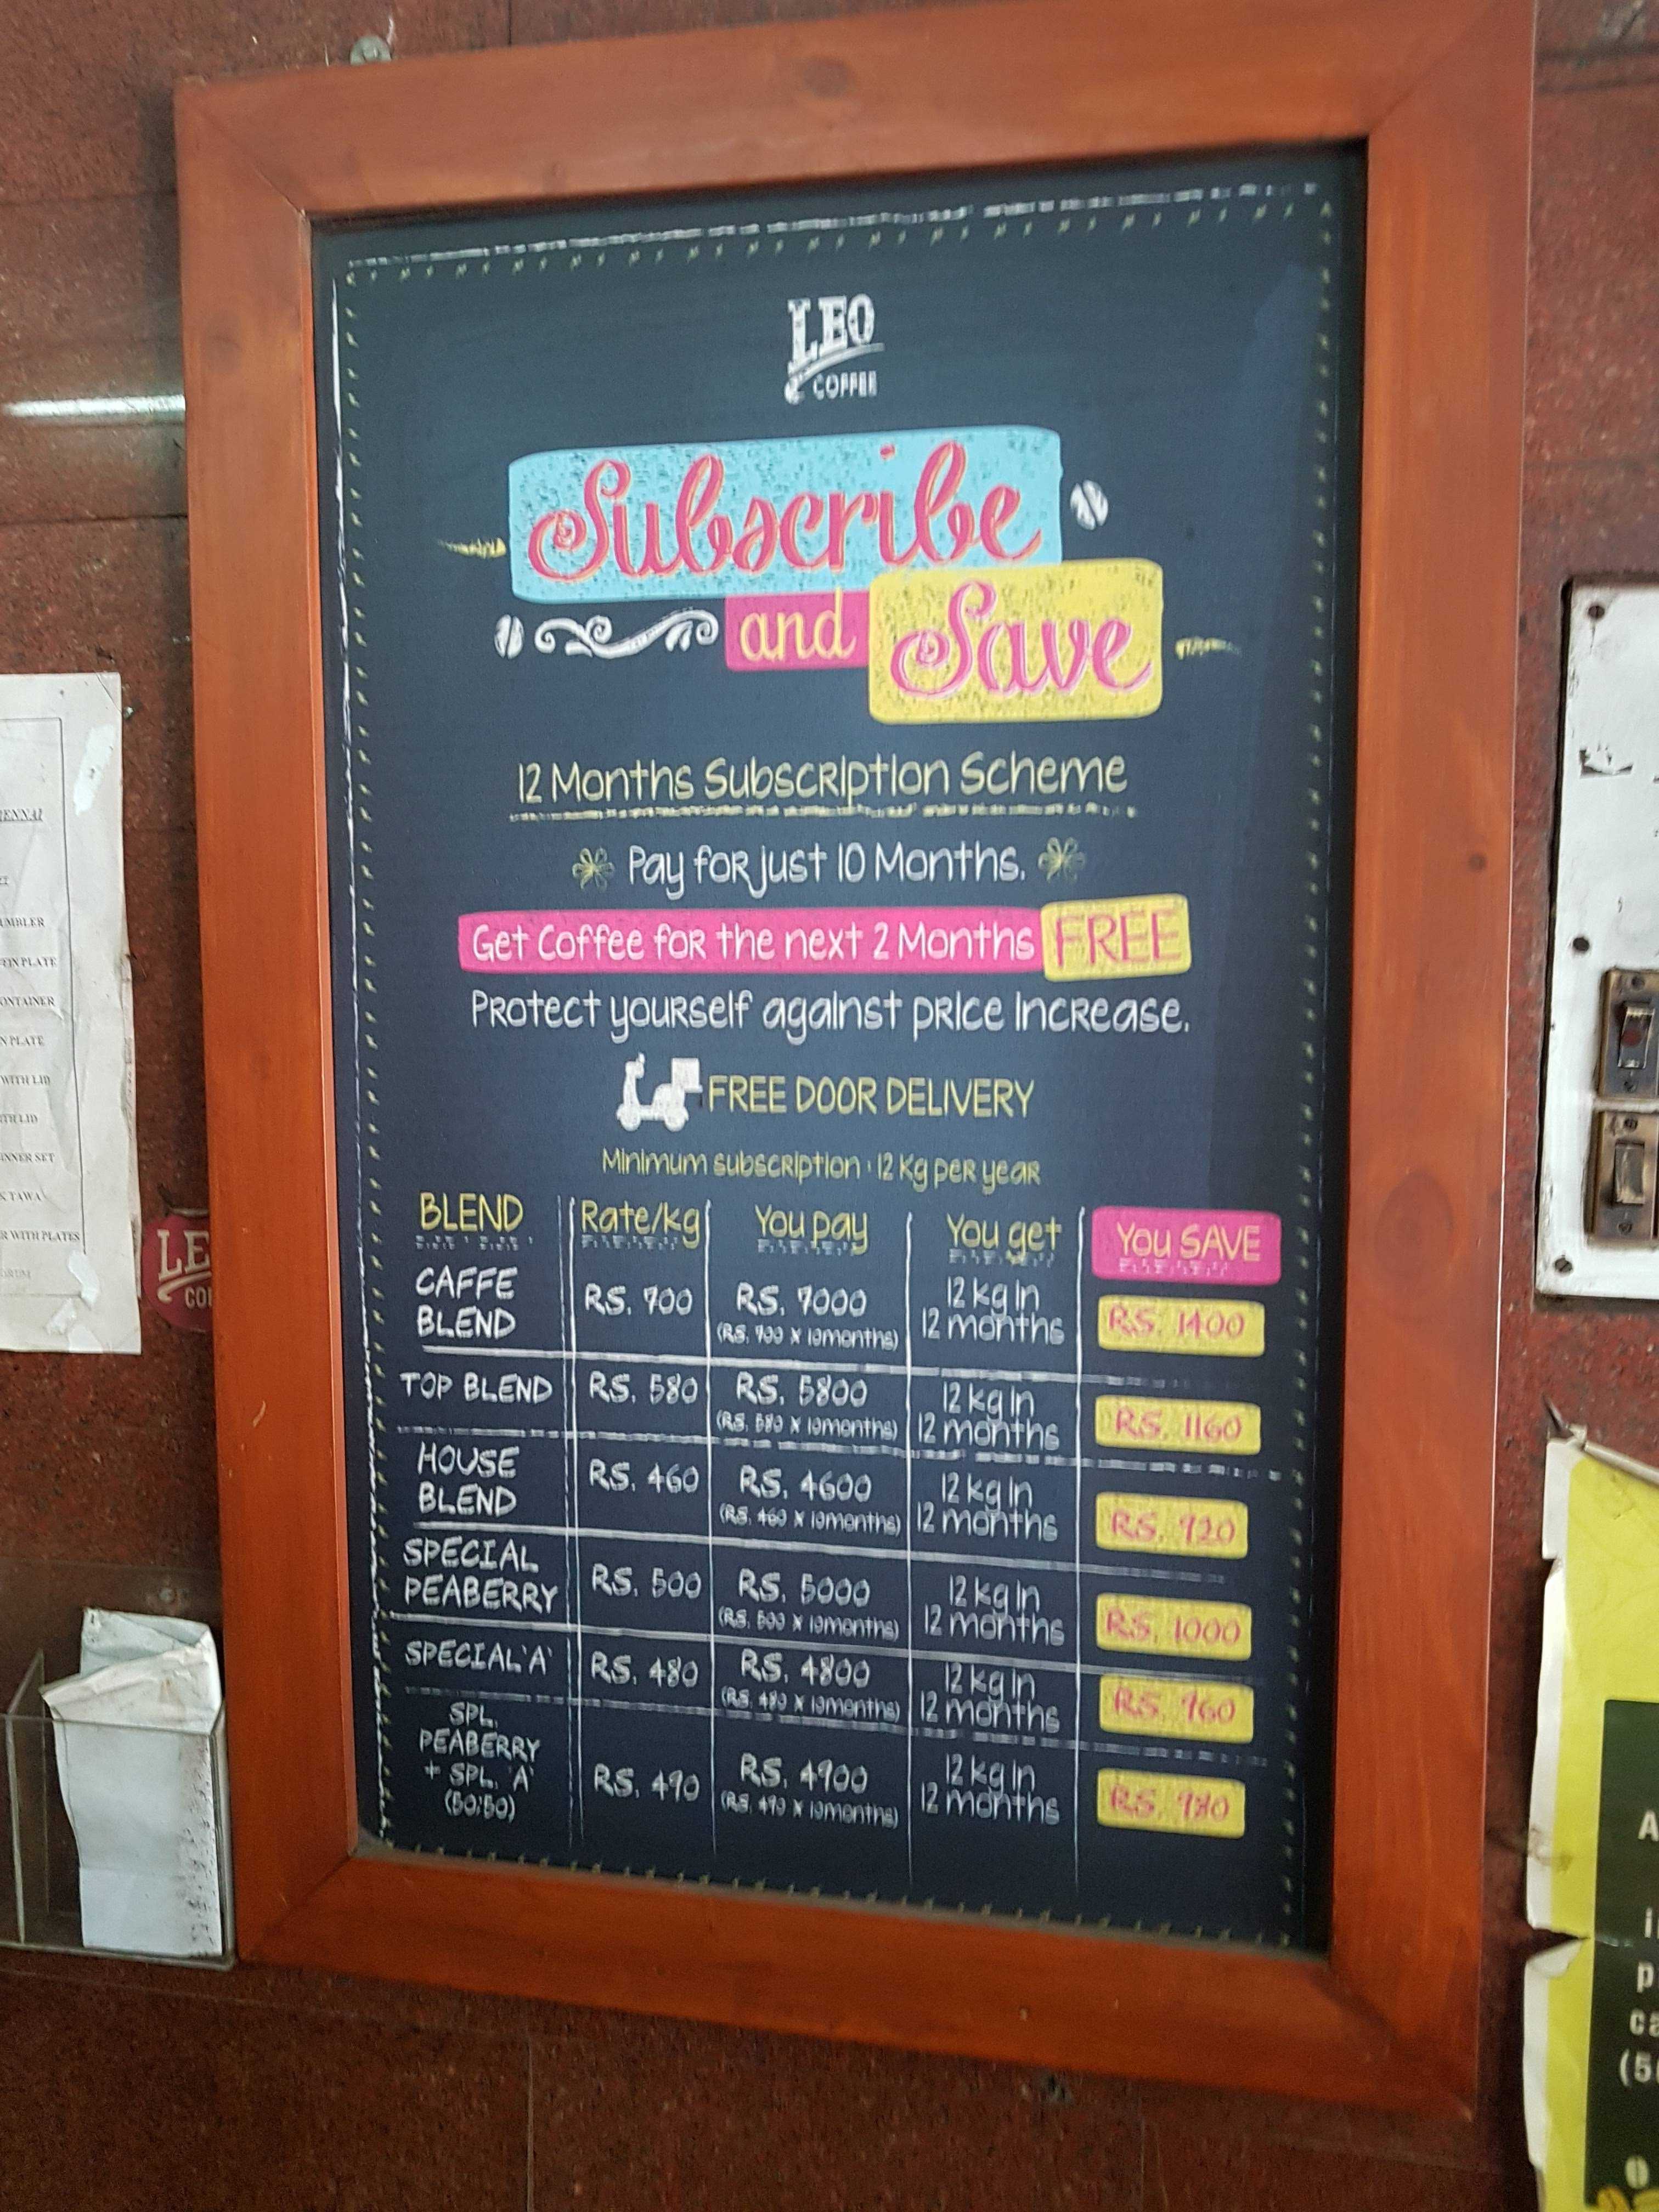 LEO
COFFEE
Subscribe
and Save
12 Months Subscription Scheme
Pay for just 10 Months.
Get Coffee for the next 2 Months FREE
Protect yourself against price increase.
FREE DOOR DELIVERY
Minimum subscription : 12 Kg per year
BLEND Rate/kg You pay You get YOU SAVE
CAFFE BLEND RS. 700 RS. 7000 (RS. 700 X 10months) 12 kg in 12 months RS. 1400
TOP BLEND RS. 580 RS. 5800 (RS. 580 X 10months) 12 kg in 12 months RS. 1160
HOUSE BLEND RS. 460 RS. 4600 (RS. 460 X 10months) 12 kg in 12 months RS. 920
SPECIAL PEABERRY RS. 500 RS. 5000 (RS. 500 X 10months) 12 kg in 12 months RS. 1000
SPECIAL 'A' RS. 480 RS. 4800 (RS. 480 X 10months) 12 kg in 12 months RS. 960
SPL. PEABERRY + SPL. 'A' (50:50) RS. 490 RS. 4900 (RS. 490 X 10months) 12 kg in 12 months RS. 980
PLATE
WITH LID
TAWA
WITH PLATES